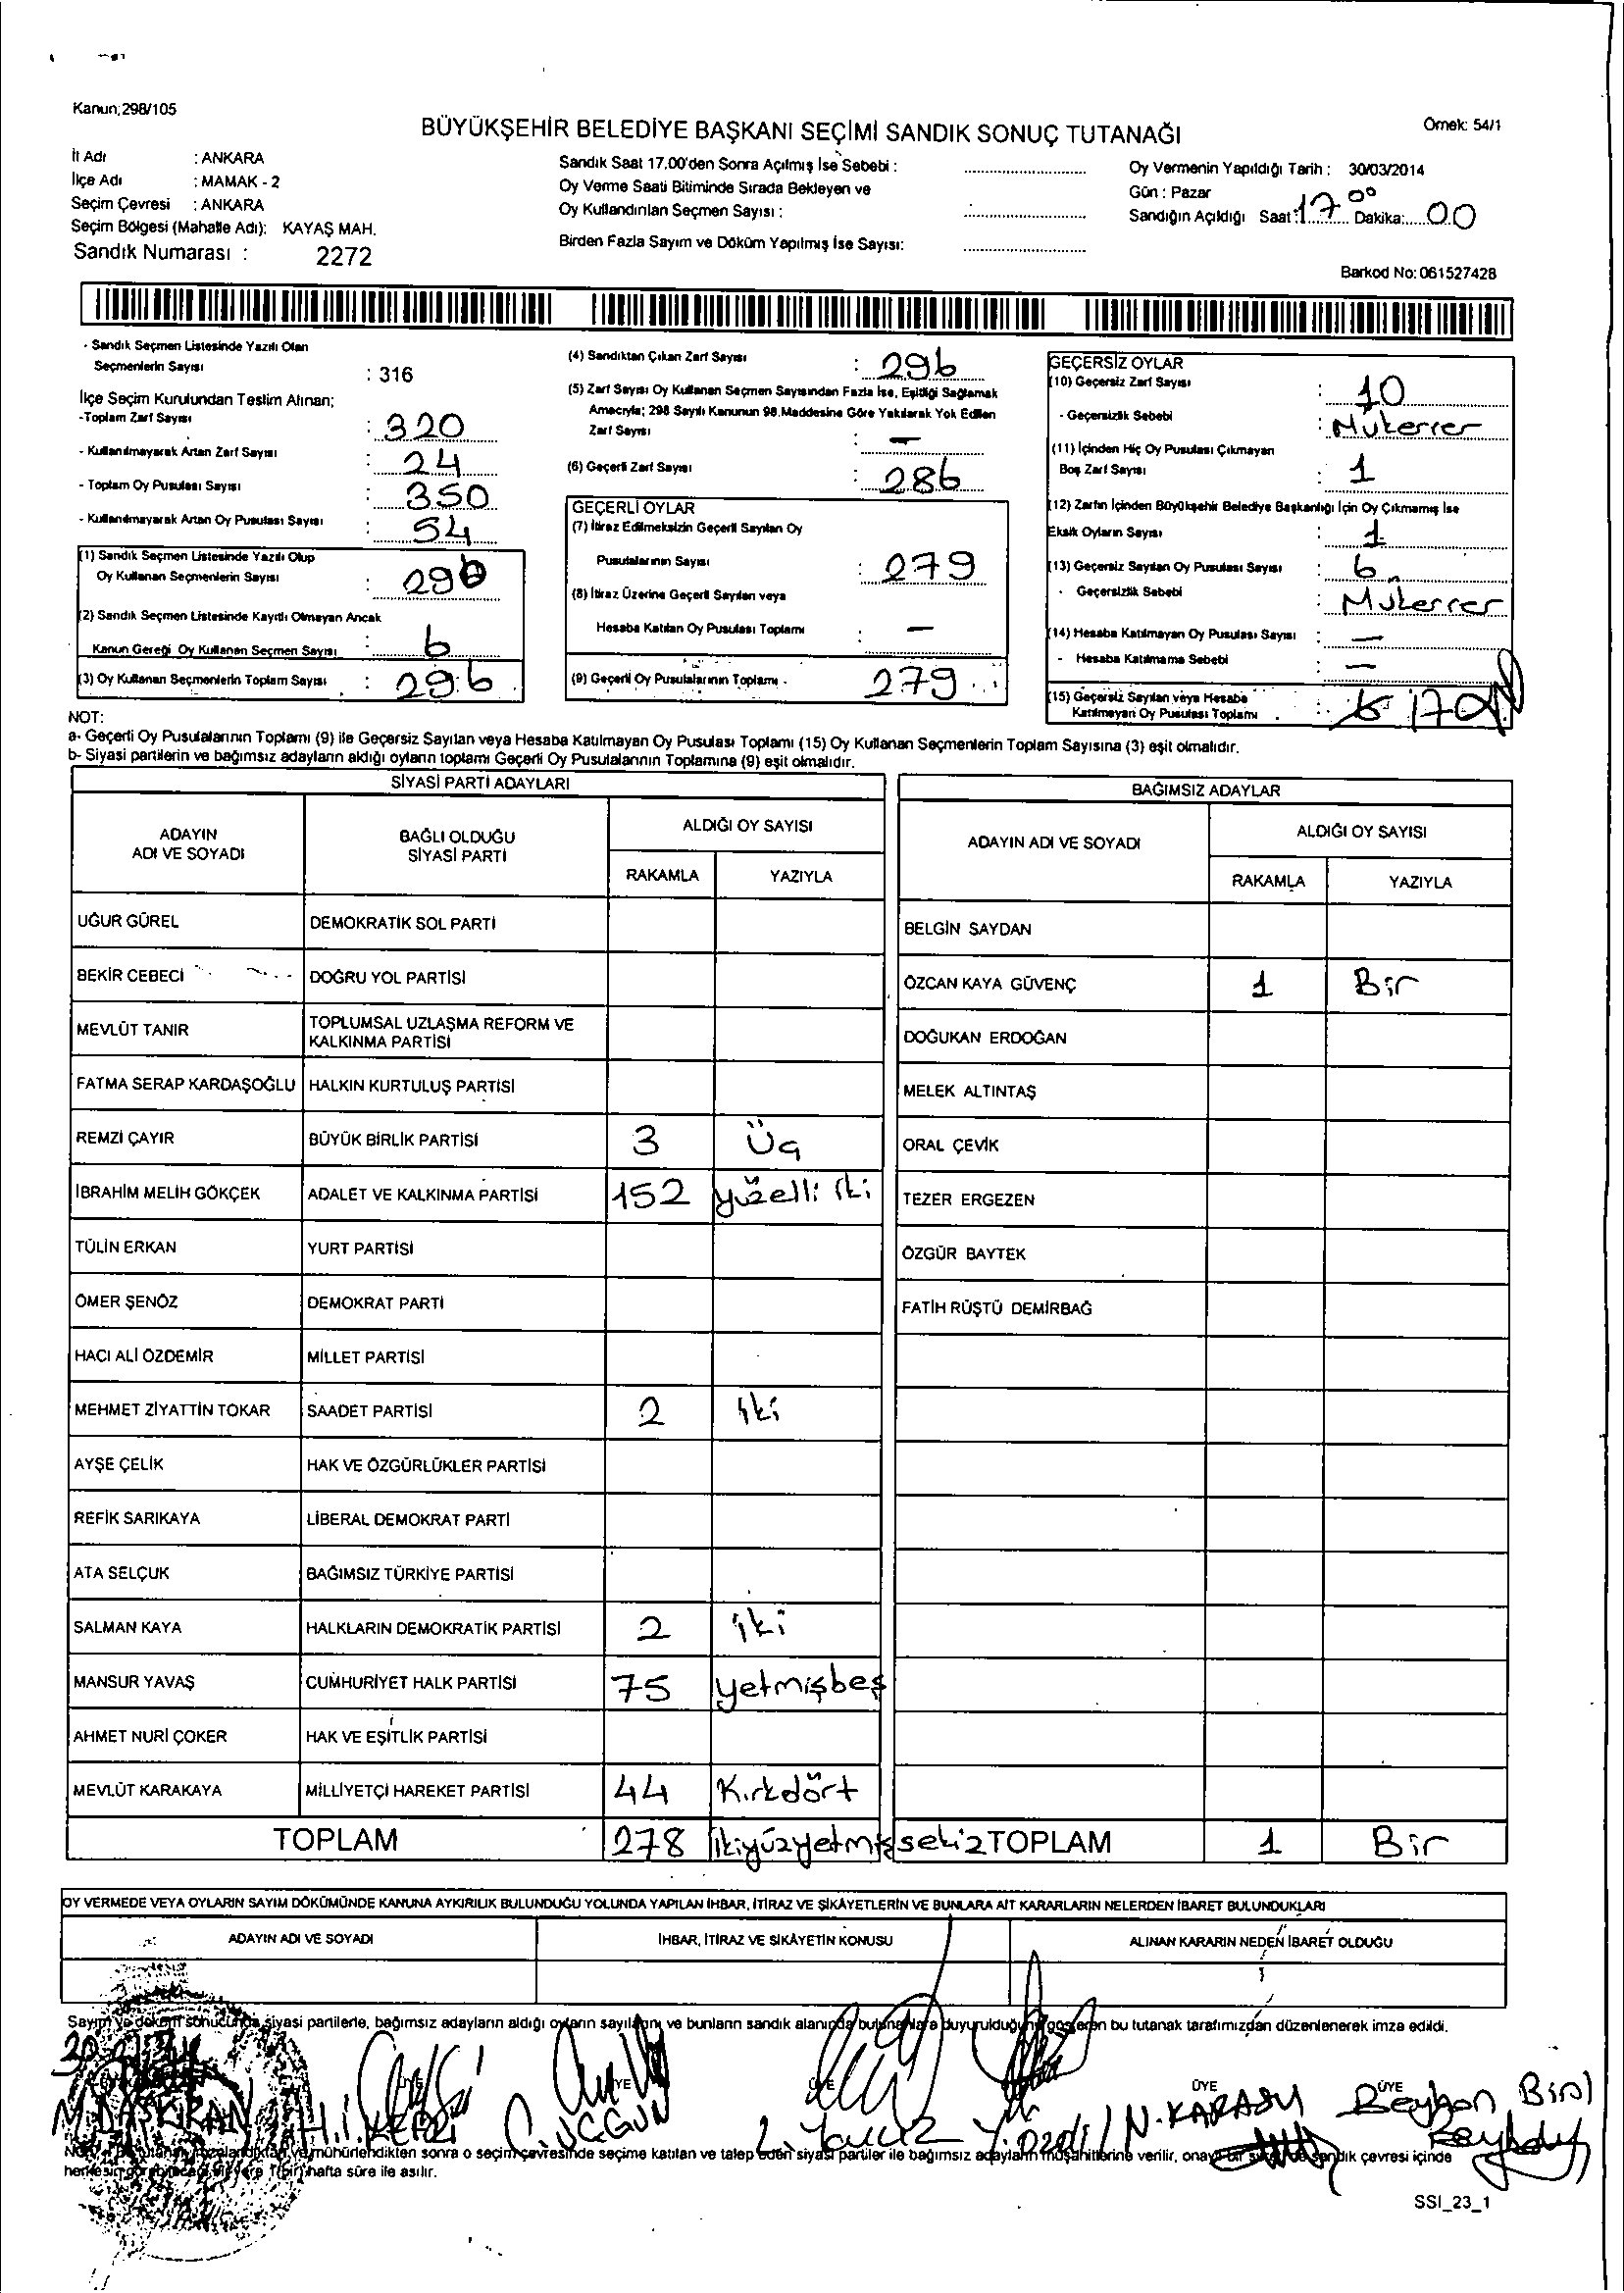 Kanun;298/105
BÜYÜKŞEHİR BELEDİYE BAŞKANI SEÇİMİ SANDIK SONUÇ TUTANAĞI
Örnek: 54/1
İl Adı : ANKARA
İlçe Adı : MAMAK - 2
Seçim Çevresi : ANKARA
Seçim Bölgesi (Mahalle Adı): KAYAŞ MAH.
Sandık Numarası : 2272
Sandık Saat 17.00'den Sonra Açılmış İse Sebebi :
Oy Verme Saati Bitiminde Sırada Bekleyen ve
Oy Kullandırılan Seçmen Sayısı :
Birden Fazla Sayım ve Döküm Yapılmış İse Sayısı:
Oy Vermenin Yapıldığı Tarih : 30/03/2014
Gün : Pazar
Sandığın Açıldığı Saat: 17 00 Dakika: 00
Barkod No: 061527428
- Sandık Seçmen Listesinde Yazılı Olan
Seçmenlerin Sayısı : 316
İlçe Seçim Kurulundan Teslim Alınan;
-Toplam Zarf Sayısı : 320
- Kullanılmayarak Artan Zarf Sayısı : 24
- Toplam Oy Pusulası Sayısı : 350
- Kullanılmayarak Artan Oy Pusulası Sayısı : 54
(1) Sandık Seçmen Listesinde Yazılı Olup
Oy Kullanan Seçmenlerin Sayısı : 290
(2) Sandık Seçmen Listesinde Kayıtlı Olmayan Ancak
Kanun Gereği Oy Kullanan Seçmen Sayısı : 6
(3) Oy Kullanan Seçmenlerin Toplam Sayısı : 296
(4) Sandıktan Çıkan Zarf Sayısı : 296
(5) Zarf Sayısı Oy Kullanan Seçmen Sayısından Fazla İse, Eşitliği Sağlamak
Amacıyla; 298 Sayılı Kanunun 98.Maddesine Göre Yakılarak Yok Edilen
Zarf Sayısı : —
(6) Geçerli Zarf Sayısı : 286
GEÇERLİ OYLAR
(7) İtiraz Edilmeksizin Geçerli Sayılan Oy
Pusulalarının Sayısı : 279
(8) İtiraz Üzerine Geçerli Sayılan veya
Hesaba Katılan Oy Pusulası Toplamı : —
(9) Geçerli Oy Pusulalarının Toplamı - 279
GEÇERSİZ OYLAR
(10) Geçersiz Zarf Sayısı : 10
- Geçersizlik Sebebi : Mükerrer
(11) İçinden Hiç Oy Pusulası Çıkmayan
Boş Zarf Sayısı : 1
(12) Zarfın İçinden Büyükşehir Belediye Başkanlığı İçin Oy Çıkmamış İse
Eksik Oyların Sayısı : 1
(13) Geçersiz Sayılan Oy Pusulası Sayısı : 6
- Geçersizlik Sebebi : Mükerrer
(14) Hesaba Katılmayan Oy Pusulası Sayısı : —
- Hesaba Katılmama Sebebi : —
(15) Geçersiz Sayılan veya Hesaba
Katılmayan Oy Pusulası Toplamı : 17
NOT:
a- Geçerli Oy Pusulalarının Toplamı (9) ile Geçersiz Sayılan veya Hesaba Katılmayan Oy Pusulası Toplamı (15) Oy Kullanan Seçmenlerin Toplam Sayısına (3) eşit olmalıdır.
b- Siyasi partilerin ve bağımsız adayların aldığı oyların toplamı Geçerli Oy Pusulalarının Toplamına (9) eşit olmalıdır.
SİYASİ PARTİ ADAYLARI
ADAYIN ADI VE SOYADI BAĞLI OLDUĞU SİYASİ PARTİ ALDIĞI OY SAYISI
RAKAMLA YAZIYLA
UĞUR GÜREL DEMOKRATİK SOL PARTİ
BEKİR CEBECİ DOĞRU YOL PARTİSİ
MEVLÜT TANIR TOPLUMSAL UZLAŞMA REFORM VE KALKINMA PARTİSİ
FATMA SERAP KARDAŞOĞLU HALKIN KURTULUŞ PARTİSİ
REMZİ ÇAYIR BÜYÜK BİRLİK PARTİSİ 3 Üç
İBRAHİM MELİH GÖKÇEK ADALET VE KALKINMA PARTİSİ 152 yüzelli iki
TÜLİN ERKAN YURT PARTİSİ
ÖMER ŞENÖZ DEMOKRAT PARTİ
HACI ALİ ÖZDEMİR MİLLET PARTİSİ
MEHMET ZİYATTİN TOKAR SAADET PARTİSİ 2 iki
AYŞE ÇELİK HAK VE ÖZGÜRLÜKLER PARTİSİ
REFİK SARIKAYA LİBERAL DEMOKRAT PARTİ
ATA SELÇUK BAĞIMSIZ TÜRKİYE PARTİSİ
SALMAN KAYA HALKLARIN DEMOKRATİK PARTİSİ 2 iki
MANSUR YAVAŞ CUMHURİYET HALK PARTİSİ 75 yetmişbeş
AHMET NURİ ÇOKER HAK VE EŞİTLİK PARTİSİ
MEVLÜT KARAKAYA MİLLİYETÇİ HAREKET PARTİSİ 44 Kırkdört
TOPLAM 278 ikiyüzyetmişsekiz
BAĞIMSIZ ADAYLAR
ADAYIN ADI VE SOYADI ALDIĞI OY SAYISI
RAKAMLA YAZIYLA
BELGİN SAYDAN
ÖZCAN KAYA GÜVENÇ 1 Bir
DOĞUKAN ERDOĞAN
MELEK ALTINTAŞ
ORAL ÇEVİK
TEZER ERGEZEN
ÖZGÜR BAYTEK
FATİH RÜŞTÜ DEMİRBAĞ
TOPLAM 1 Bir
OY VERMEDE VEYA OYLARIN SAYIM DÖKÜMÜNDE KANUNA AYKIRILIK BULUNDUĞU YOLUNDA YAPILAN İHBAR, İTİRAZ VE ŞİKÂYETLERİN VE BUNLARA AİT KARARLARIN NELERDEN İBARET BULUNDUKLARI
ADAYIN ADI VE SOYADI İHBAR, İTİRAZ VE ŞİKÂYETİN KONUSU ALINAN KARARIN NEDEN İBARET OLDUĞU
Sayım ve döküm sonucunda siyasi partilerle, bağımsız adayların aldığı oyların sayılarını ve bunların sandık alanında bulunanlara duyurulduğunu gösteren bu tutanak tarafımızdan düzenlenerek imza edildi.
ÜYE ÜYE ÜYE ÜYE ÜYE
M.DAŞKIRAN C.UÇGUN N.KARASU Beyhan Birol
mühürlendikten sonra o seçim çevresinde seçime katılan ve talep eden siyasi partiler ile bağımsız adayların müşahitlerine verilir, onaylı bir sureti de sandık çevresi içinde
hafta süre ile asılır.
SSI_23_1